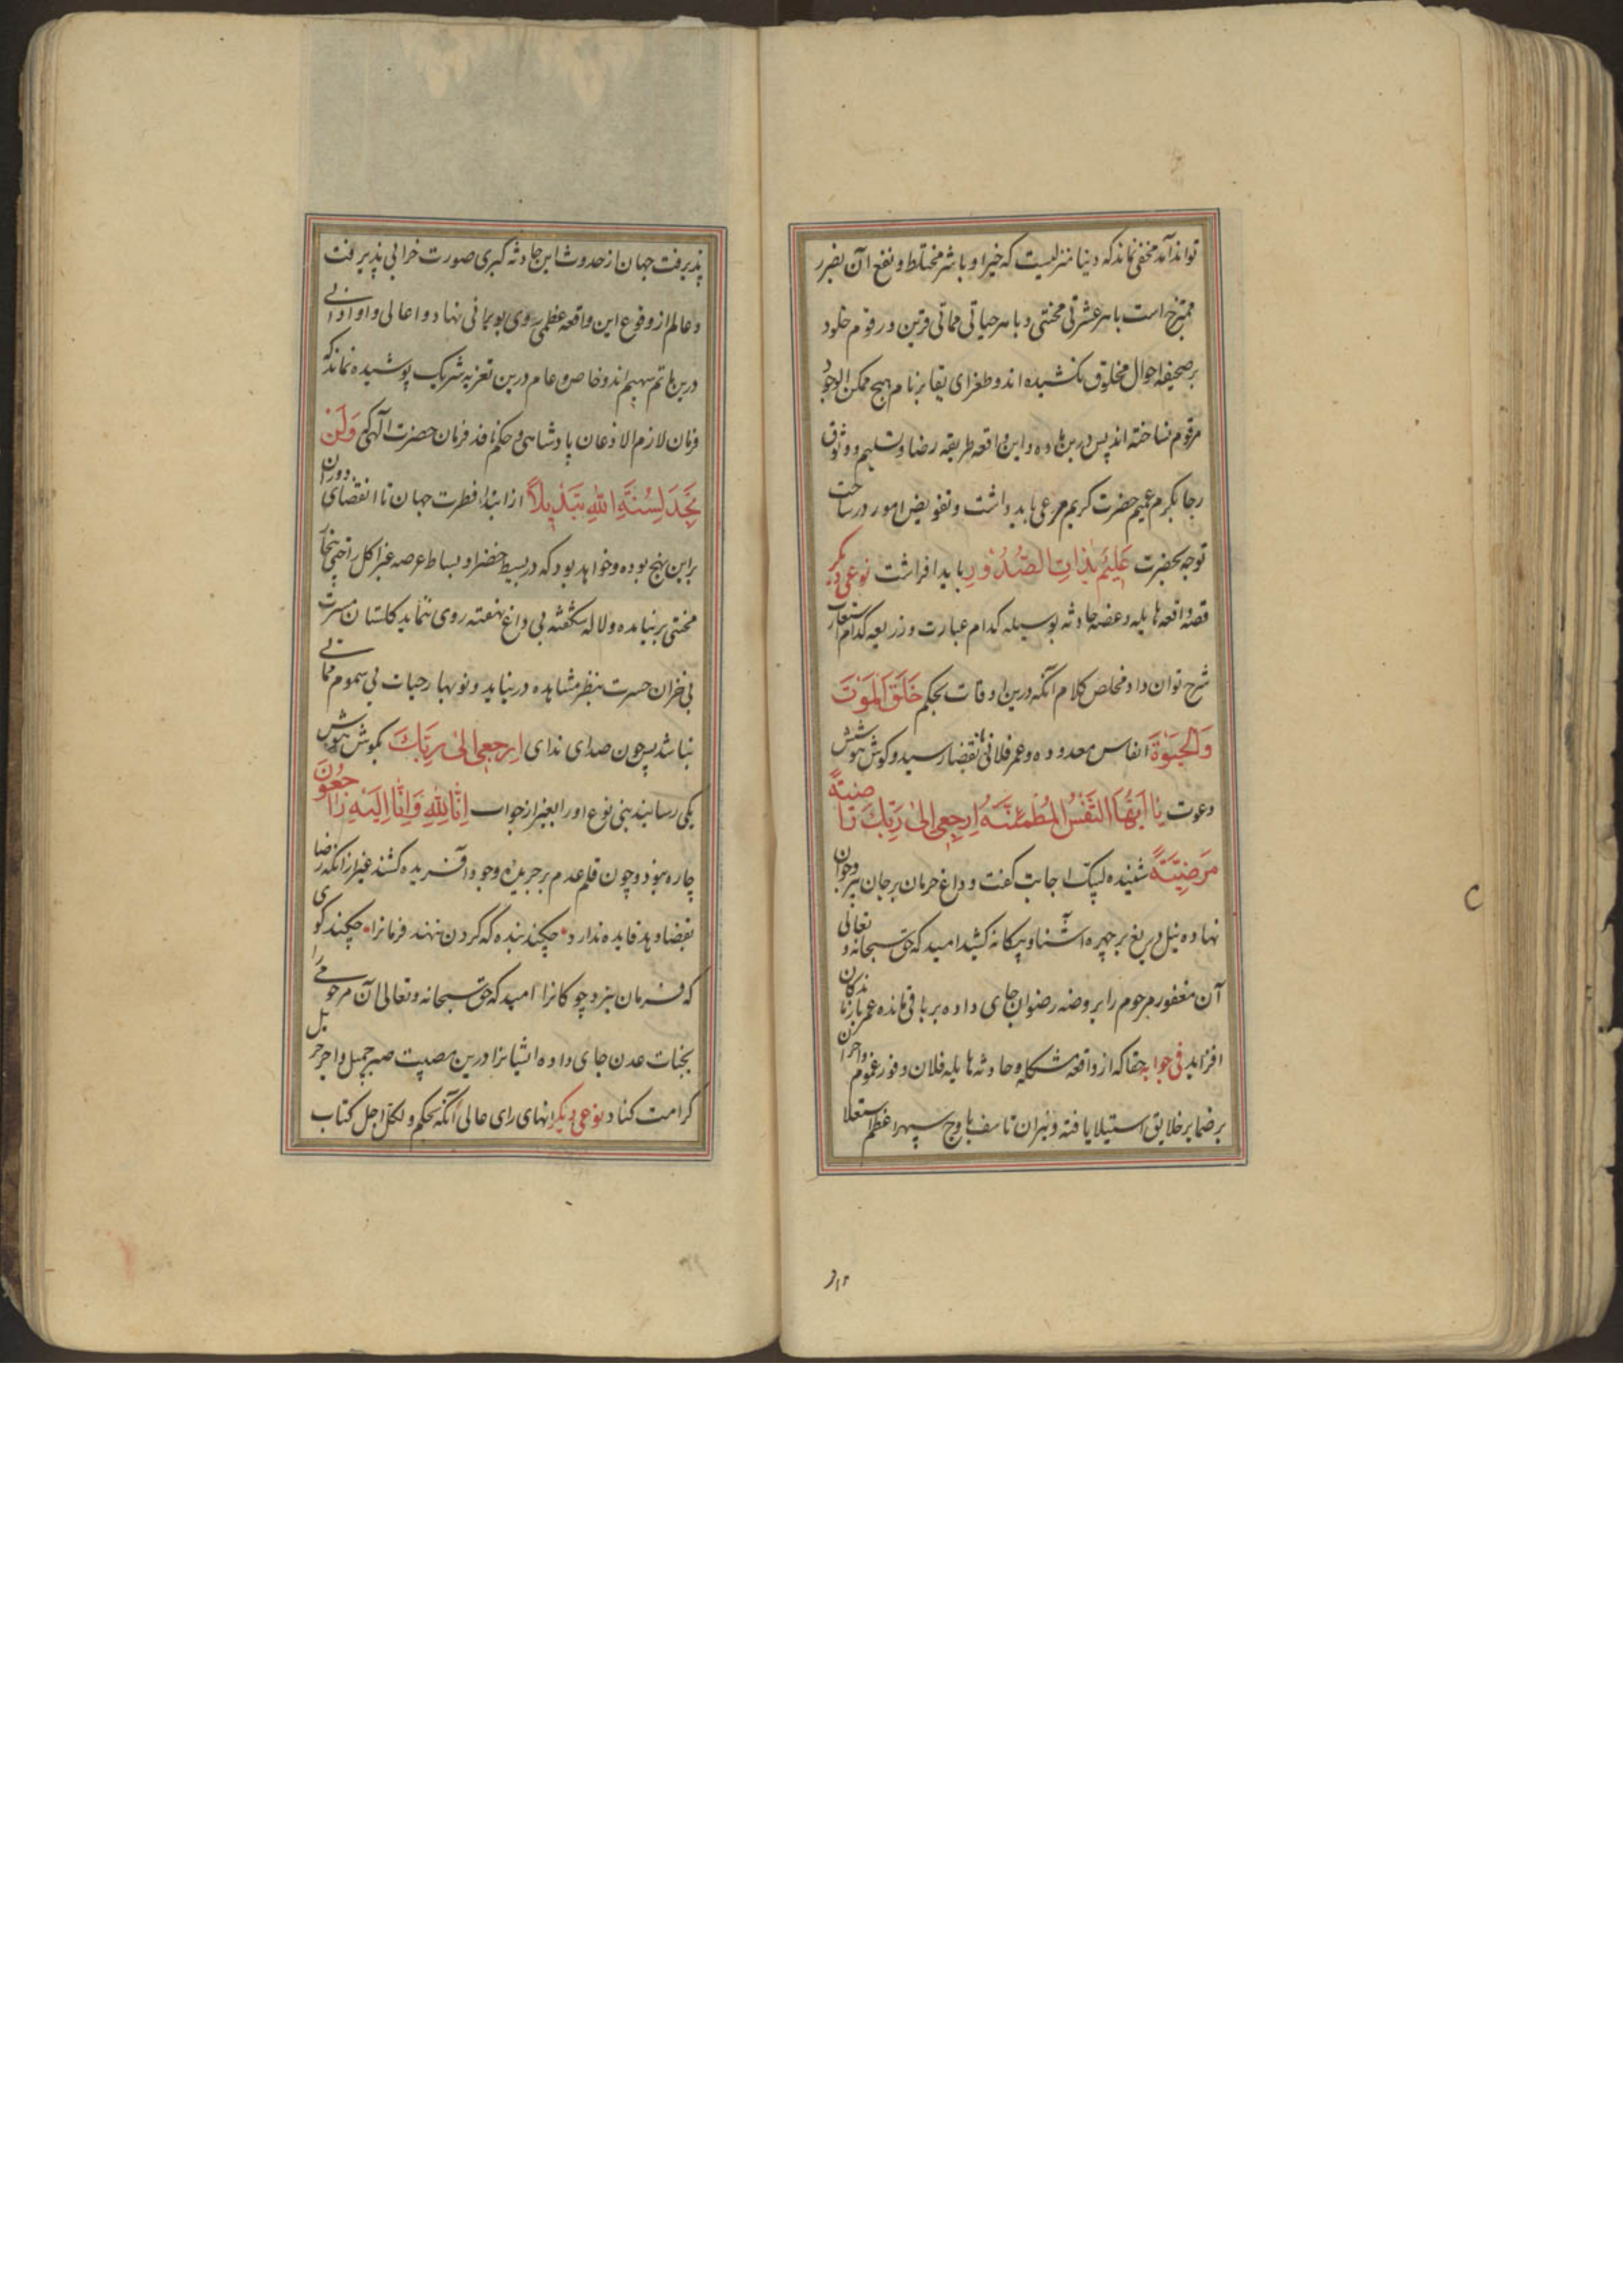 تواند آمد مخفی نماند که دنیا منزلیست که خیر او با شر مختلط و نفع آن بضرر
ممتزج است با هر عشرتی محنتی و با هر حیاتی مماتی قرین و رقوم خلود
بر صحیفه احوال مخلوق نکشیده اند و طغرای بقا بر نام هیچ ممکن الوجود
مرقوم نساخته اند پس درین ماده و این واقعه طریقه رضا و تسلیم و وثوق
رجا بکرم عمیم حضرت کریم مرعی باید داشت و تفویض امور در ساحت
توجه بحضرت عَلِیمٌ بِذَاتِ الصُّدُورِ باید افراشت نوعی دیگر
قصه واقعه هایله و غصه حادثه بوسیله کدام عبارت و ذریعه کدام استعارت
شرح توان داد مخلص کلام آنکه درین اوقات بحکم خَلَقَ الْمَوْتَ
وَالْحَیٰوةَ انفاس معدوده و عمر فلانی بانقضا رسید و کوش هوشش
دعوت یَا اَیَّتُهَا النَّفْسُ الْمُطْمَئِنَّةُ اِرْجِعِی اِلٰی رَبِّكِ رَاضِیَةً
مَرْضِیَّةً شنیده لبیک اجابت گفت و داغ حرمان بر جان پیر و جوان
نهاده نیل دریغ بر چهره آشنا و بیکانه کشید امید که حق سبحانه و تعالی
آن مغفور مرحوم را بروضه رضوان جای داده بر باقی مانده عمر بازماندکان
افزاید فی جوابه حقا که از واقعه مشکله و حادثه هایله فلان وفور غموم و احزان
بر ضمایر خلایق استیلا یافته و نیران تاسف باوج سپهر اعظم استعلا
۳۱۲
پذیرفت جهان از حدوث این حادثه کبری صورت خرابی پذیرفت
و عالم از وقوع این واقعه عظمی روی بویرانی نهاد و اعالی و ادانی
درین ماتم سهیم اند و خاص و عام درین تعزیه شریک پوشیده نماند که
فرمان لازم الاذعان پادشاهی و حکم نافذ فرمان حضرت آلهی که وَلَنْ
تَجِدَ لِسُنَّةِ اللهِ تَبْدِیلًا از ابتداء فطرت جهان تا انقضای دوران
بر این نهج بوده و خواهد بود که در بسیط خضرا و بساط عرصه غبرا کل راحتی بی خار
محنتی بر نیامده و لاله شکفته بی داغ نهفته روی ننماید کلستان مسرت
بی خزان حسرت بنظر مشاهده در نیاید و نوبهار حیات بی سموم مماتی
نباشد پس چون صدای ندای اِرجِعِی اِلٰی رَبِّكَ بکوش هوش
یکی رسانیدند بنی نوع او را بغیر از جواب اِنَّا لِلّٰهِ وَاِنَّا اِلَیْهِ رَاجِعُونَ
چاره نبود و چون قلم عدم بر جریده وجود آفریده کشند غیر از آنکه رضا
بقضا و بد فایده ندارد چکند بنده که گردن ننهد فرمانرا چکند کوی
که فرمان نبرد چوکانرا امید که حق سبحانه و تعالی آن مرحومی را
بجنات عدن جای داده ایشانرا درین مصیبت صبر جمیل و اجر جزیل
کرامت کناد نوعی دیکر انهای رای عالی آنکه بحکم و لکل اجل کتاب